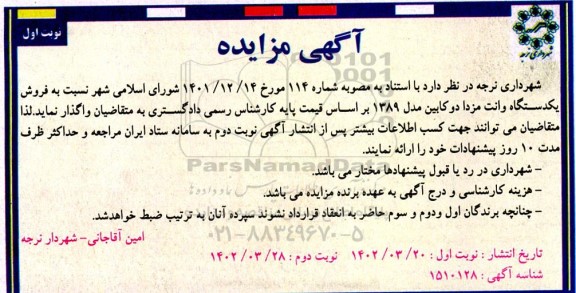 نوبت اول
آگهی مزایده
شهرداری نرجه
شهرداری نرجه در نظر دارد با استناد به مصوبه شماره ۱۱۴ مورخ ۱۴۰۱/۱۲/۱۴ شورای اسلامی شهر نسبت به فروش
یکدستگاه وانت مزدا دوکابین مدل ۱۳۸۹ بر اساس قیمت پایه کارشناس رسمی دادگستری به متقاضیان واگذار نماید.لذا
متقاضیان می توانند جهت کسب اطلاعات بیشتر پس از انتشار آگهی نوبت دوم به سامانه ستاد ایران مراجعه و حداکثر ظرف
مدت ۱۰ روز پیشنهادات خود را ارائه نمایند.
– شهرداری در رد یا قبول پیشنهادها مختار می باشد.
– هزینه کارشناسی و درج آگهی به عهده برنده مزایده می باشد.
– چنانچه برندگان اول ودوم و سوم حاضر به انعقاد قرارداد نشوند سپرده آنان به ترتیب ضبط خواهدشد.
امین آقاجانی– شهردار نرجه
تاریخ انتشار : نوبت اول : ۱۴۰۲/۰۳/۲۰ نوبت دوم : ۱۴۰۲/۰۳/۲۸
شناسه آگهی : ۱۵۱۰۱۲۸
ParsNamadData
۰۲۱-۸۸۳۴۹۶۷۰-۵